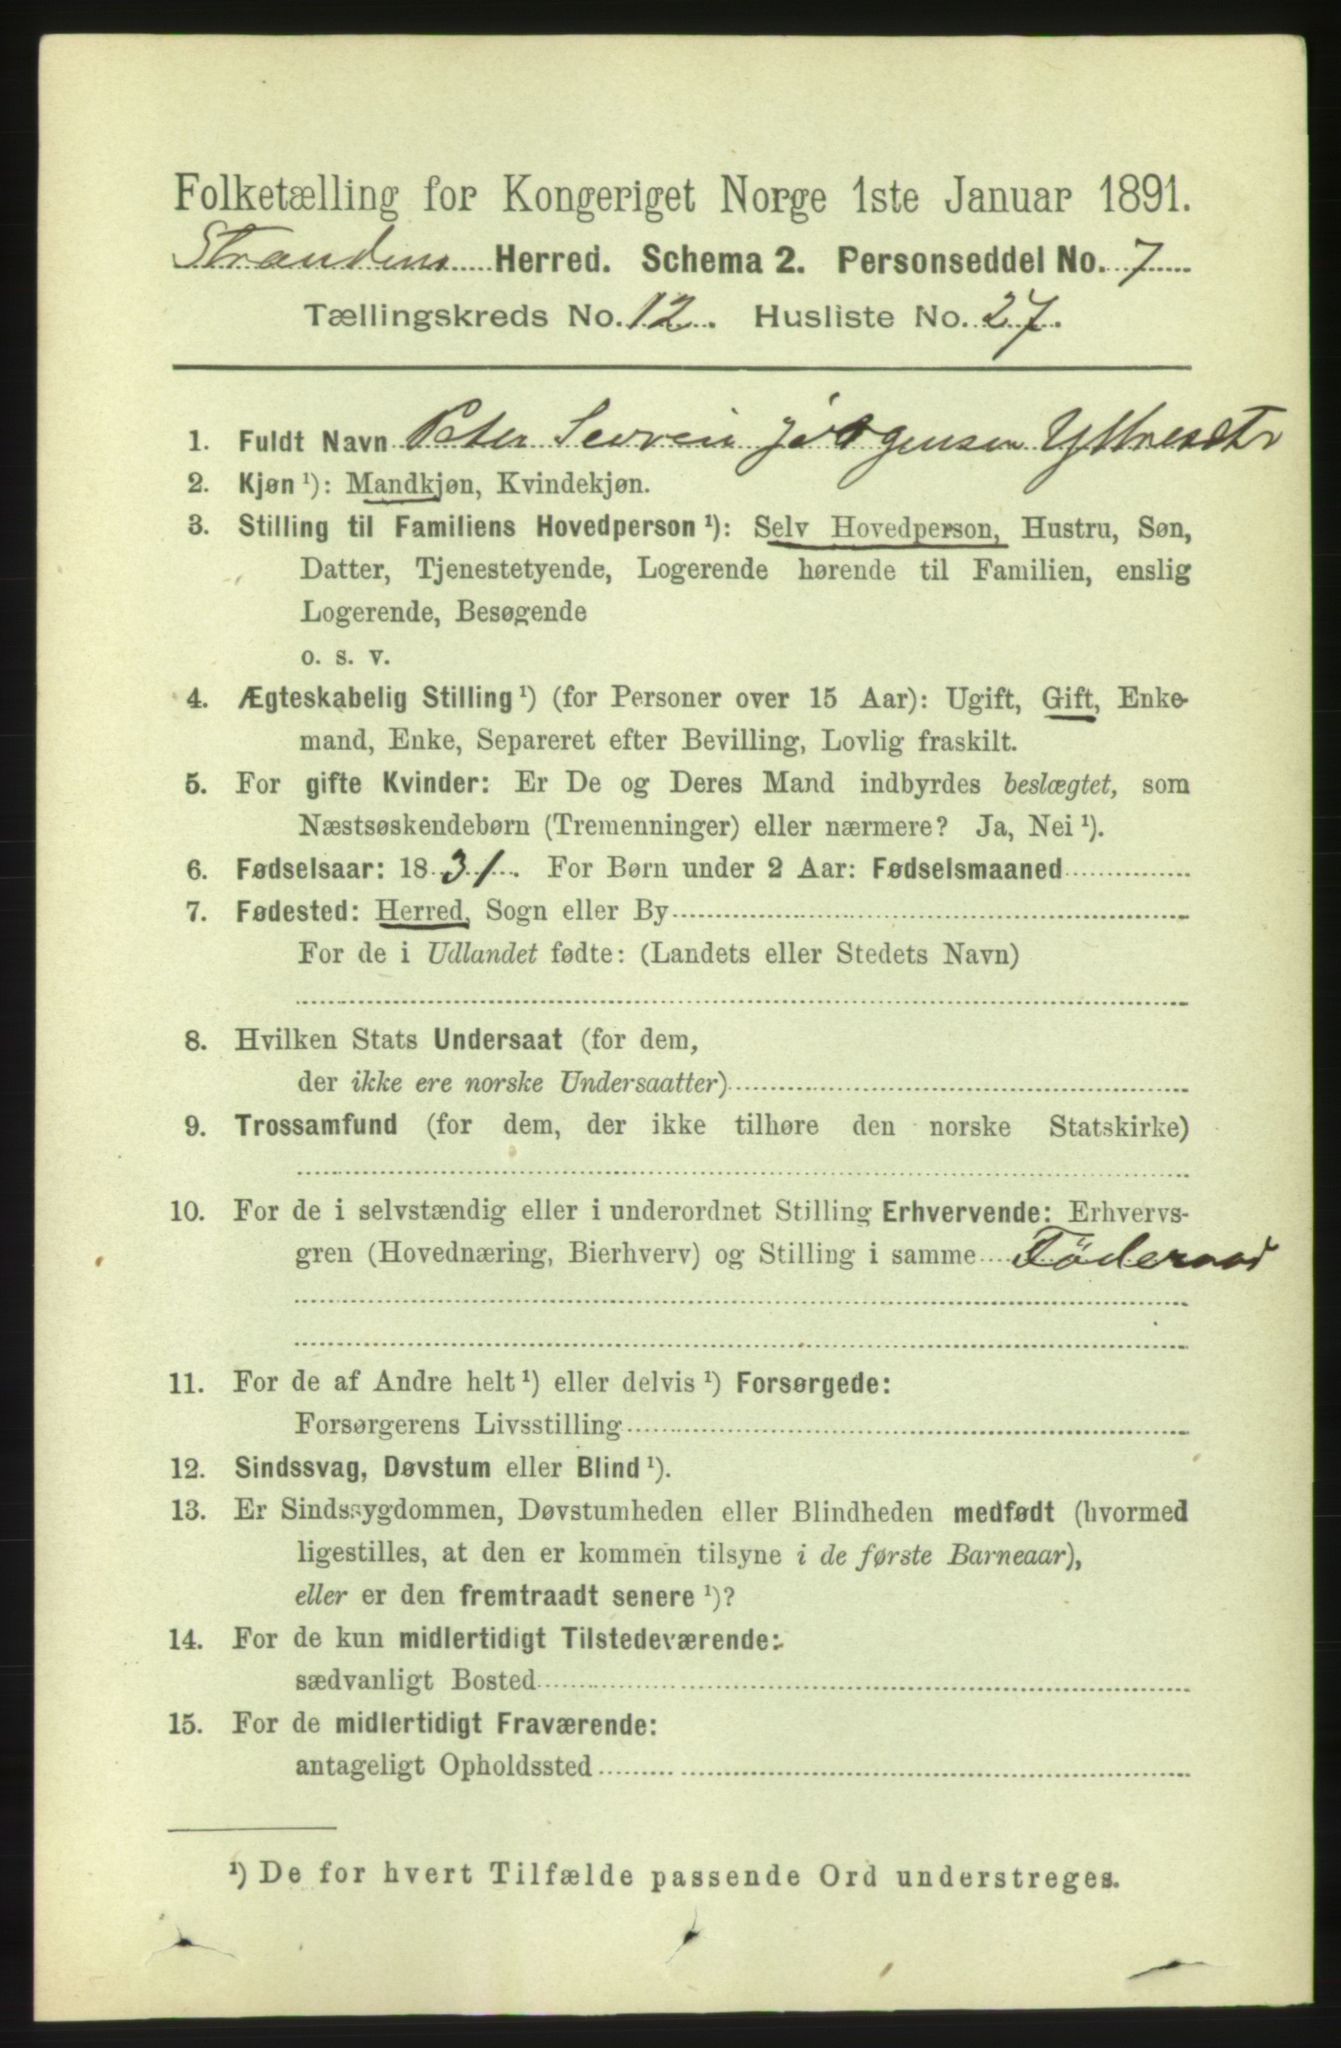 Folketælling for Kongeriget Norge 1ste Januar 1891.
Strandens Herred. Schema 2. Personseddel No. 7
Tællingskreds No. 12. Husliste No. 27.
1. Fuldt Navn Peter Severin Jörgensen
2. Kjøn ¹): Mandkjøn, Kvindekjøn.
3. Stilling til Familiens Hovedperson ¹): Selv Hovedperson, Hustru, Søn,
Datter, Tjenestetyende, Logerende hørende til Familien, enslig
Logerende, Besøgende
o. s. v.
4. Ægteskabelig Stilling ¹) (for Personer over 15 Aar): Ugift, Gift, Enke-
mand, Enke, Separeret efter Bevilling, Lovlig fraskilt.
5. For gifte Kvinder: Er De og Deres Mand indbyrdes beslægtet, som
Næstsøskendebørn (Tremenninger) eller nærmere? Ja, Nei ¹).
6. Fødselsaar: 1831. For Børn under 2 Aar: Fødselsmaaned
7. Fødested: Herred, Sogn eller By
For de i Udlandet fødte: (Landets eller Stedets Navn)
8. Hvilken Stats Undersaat (for dem,
der ikke ere norske Undersaatter)
9. Trossamfund (for dem, der ikke tilhøre den norske Statskirke)
10. For de i selvstændig eller i underordnet Stilling Erhvervende: Erhvervs-
gren (Hovednæring, Bierhverv) og Stilling i samme Föderaad
11. For de af Andre helt ¹) eller delvis ¹) Forsørgede:
Forsørgerens Livsstilling
12. Sindssvag, Døvstum eller Blind ¹).
13. Er Sindssygdommen, Døvstumheden eller Blindheden medfødt (hvormed
ligestilles, at den er kommen tilsyne i de første Barneaar),
eller er den fremtraadt senere ¹)?
14. For de kun midlertidigt Tilstedeværende:
sædvanligt Bosted
15. For de midlertidigt Fraværende:
antageligt Opholdssted
¹) De for hvert Tilfælde passende Ord understreges.